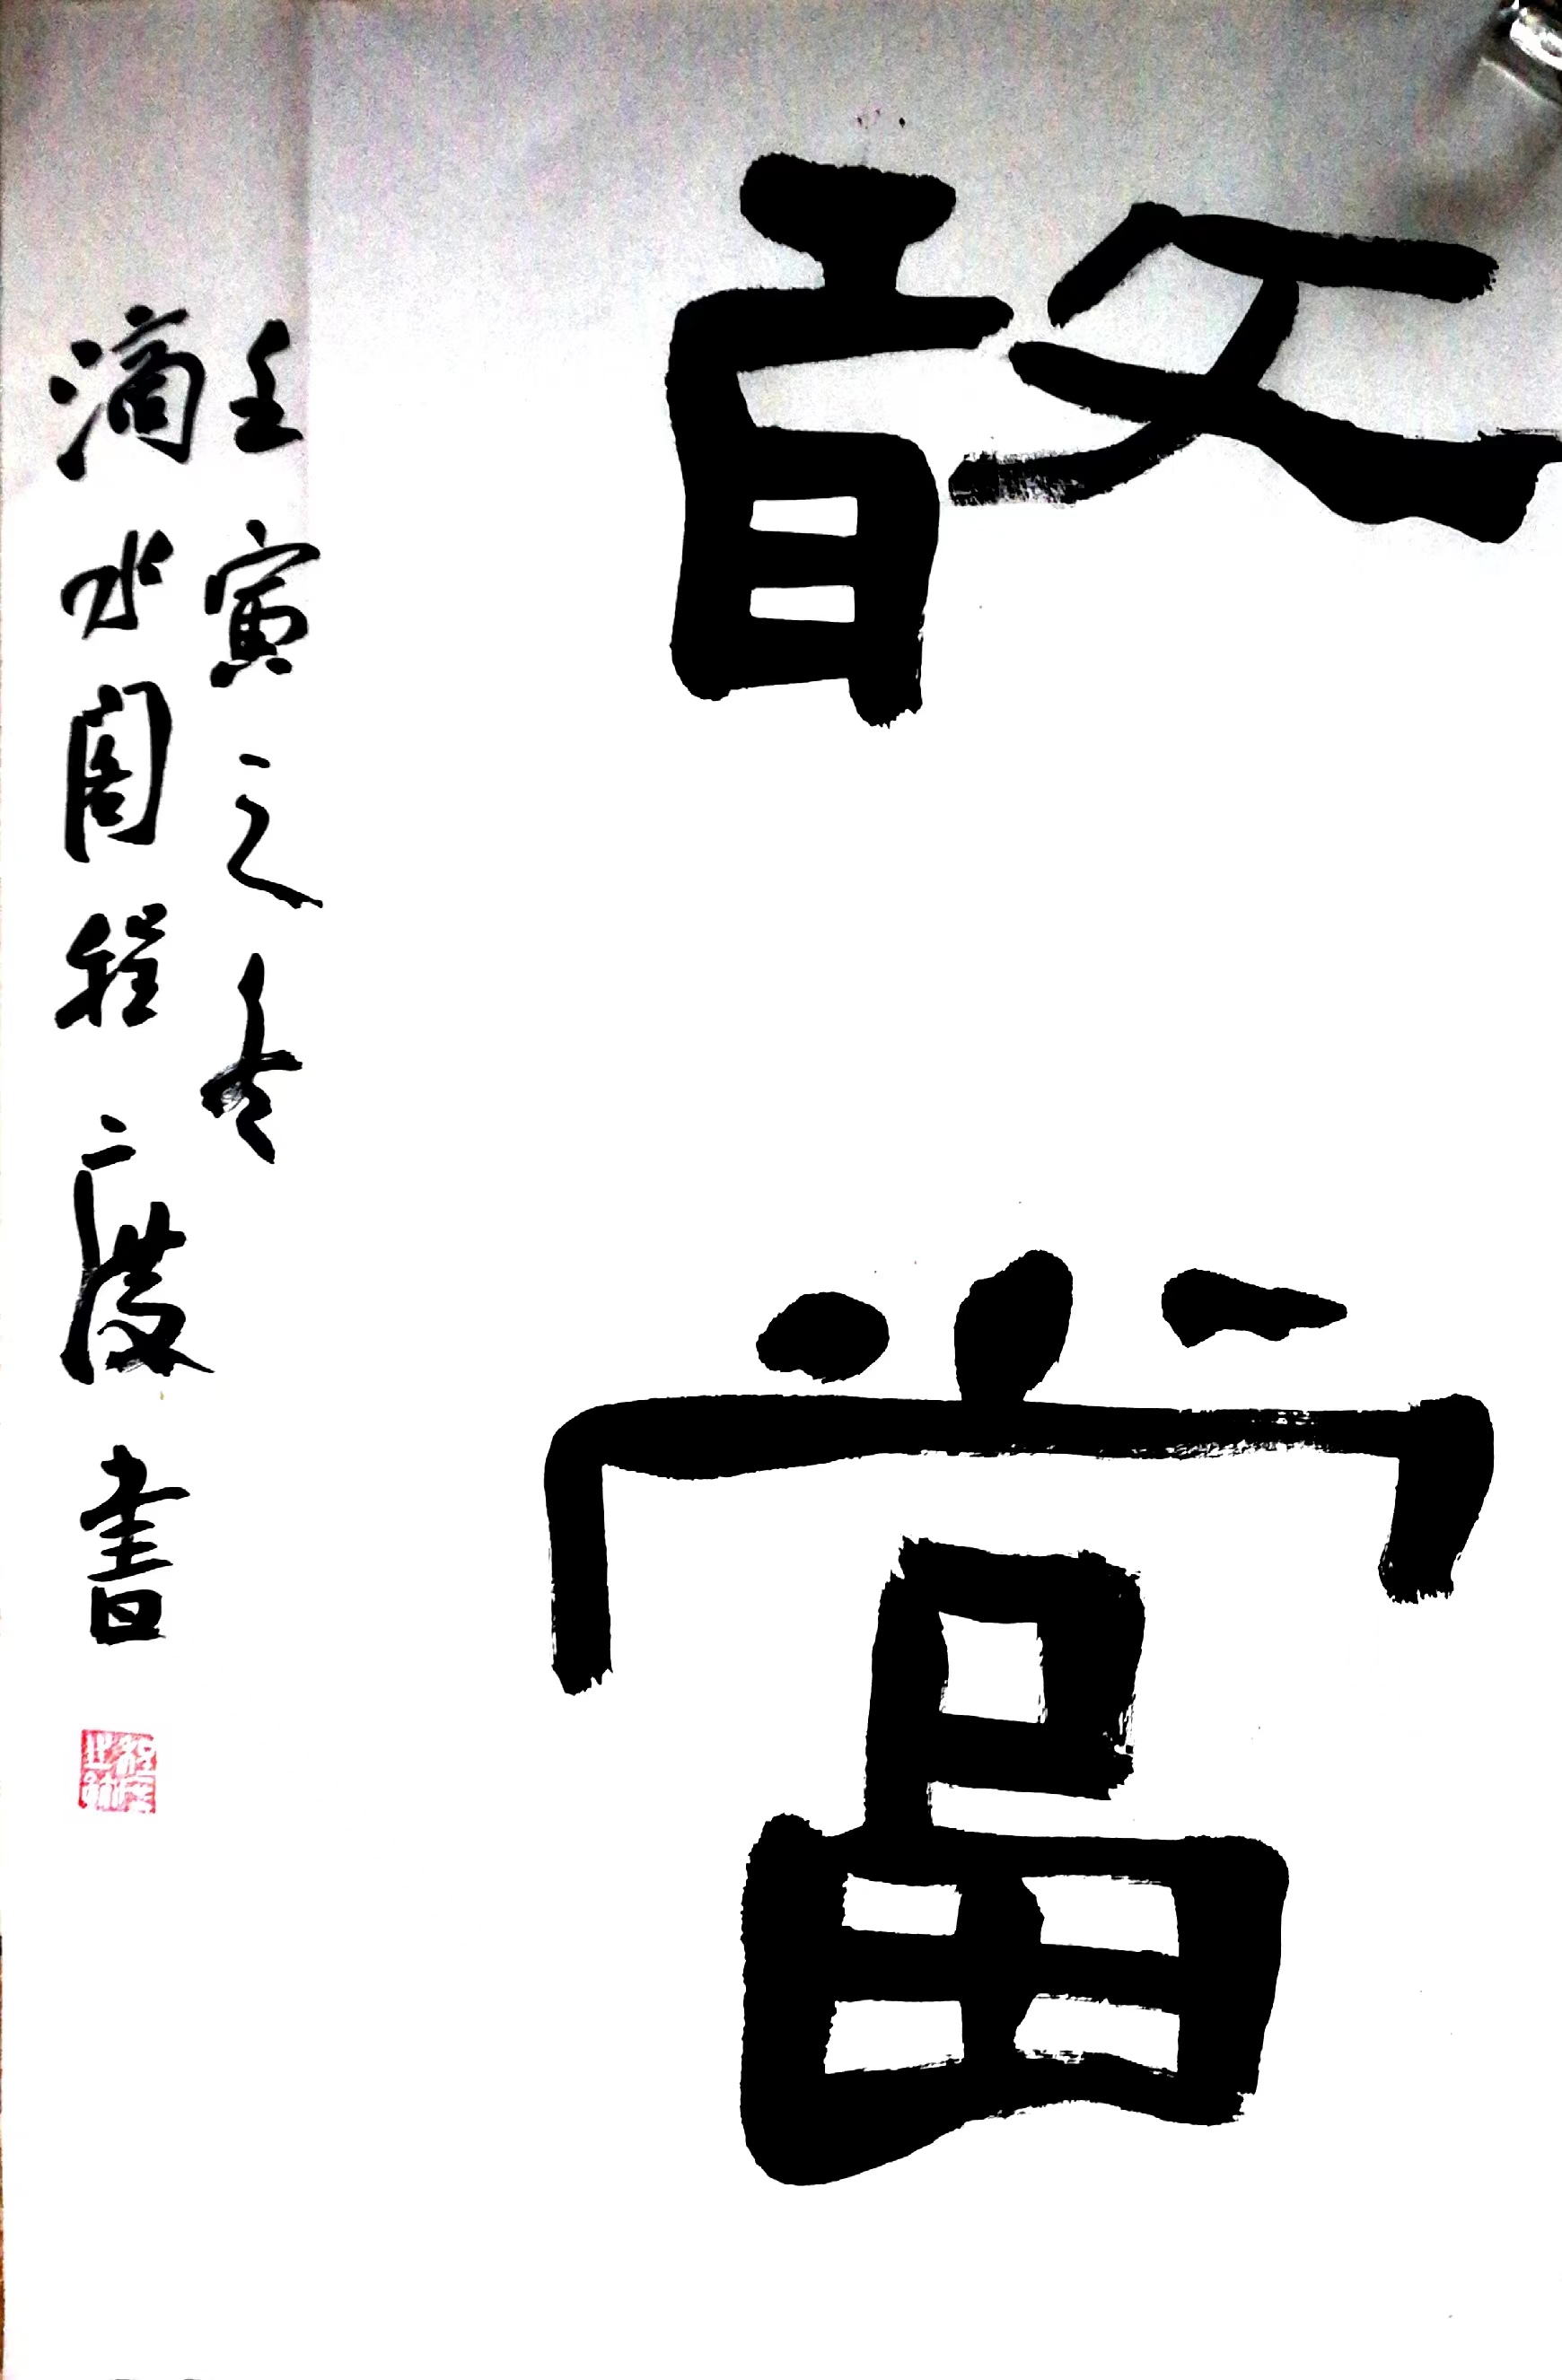 敢當
壬寅之冬
滴水閣程廣書